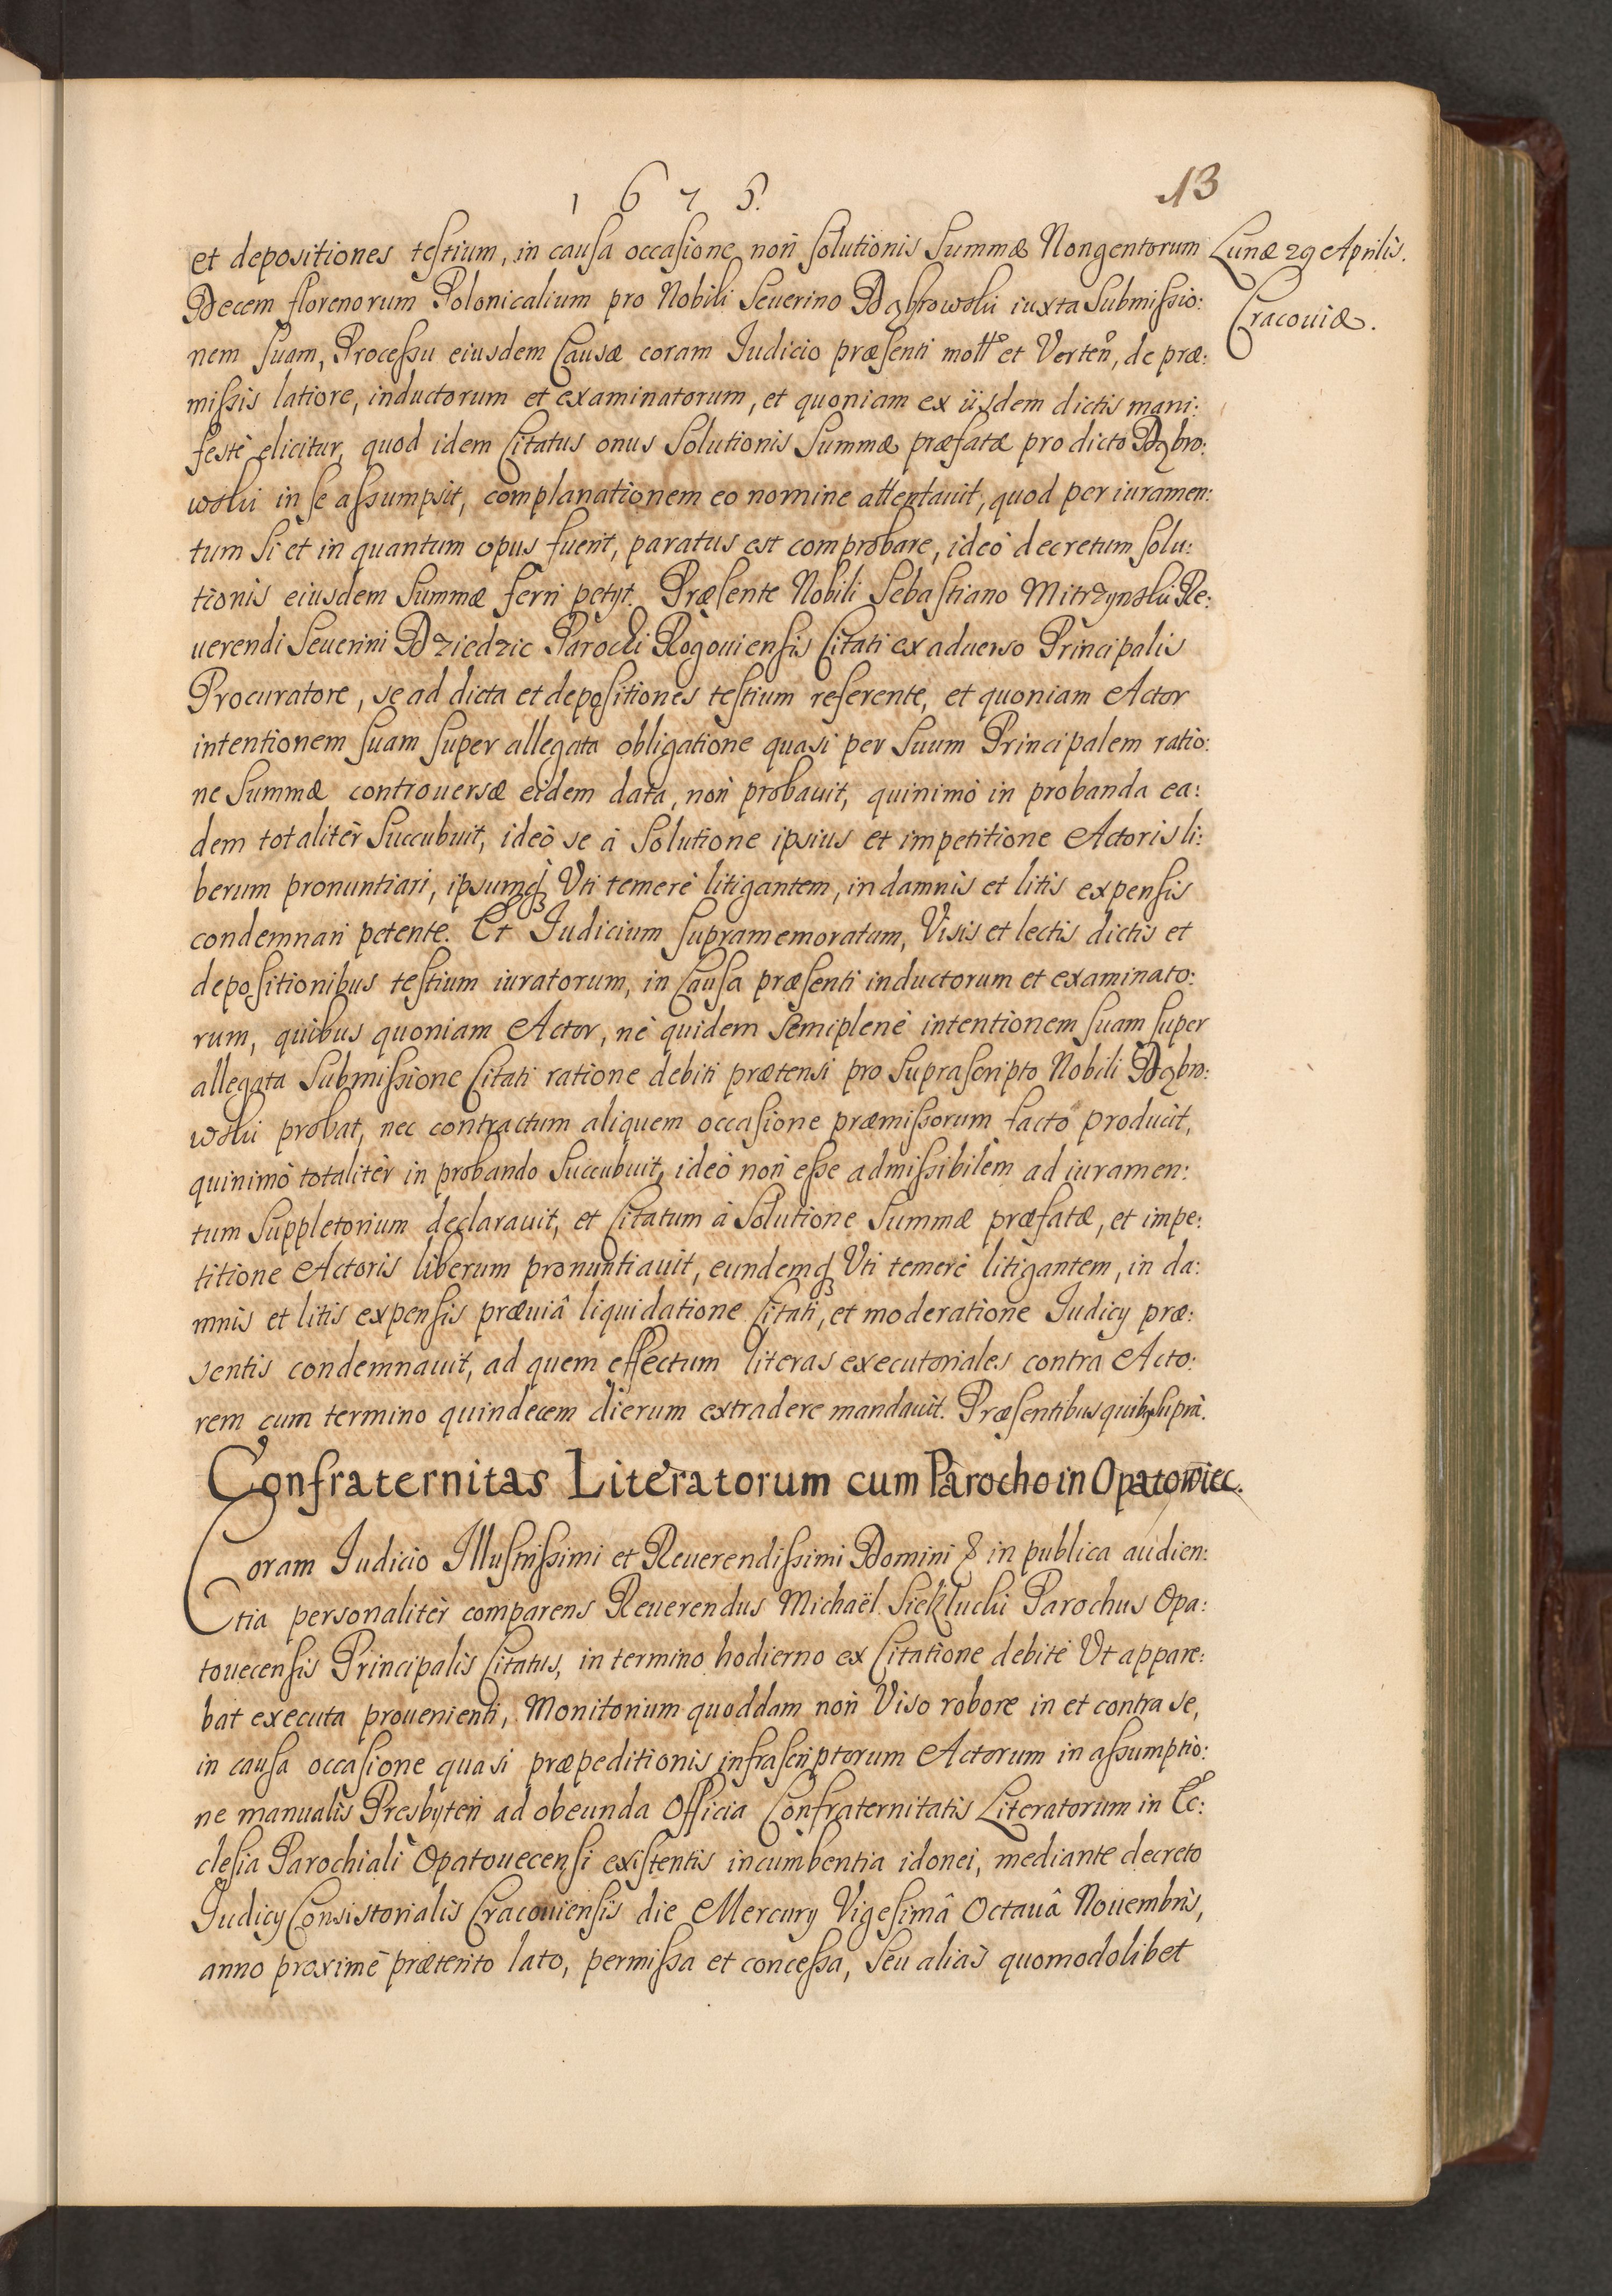 1675.
13
Lunæ 29 Aprilis.
Cracouiæ.
et depositiones testium, in causa occasione non solutionis Summæ Nongentorum
Decem florenorum Polonicalium pro Nobili Seuerino Dąbrowski iuxta Submissio:
nem suam, Processu eiusdem Causæ coram Iudicio præsenti mott° et Verteñ, de præ:
missis latiore, inductorum et examinatorum, et quoniam ex iisdem dictis mani:
festè elicitur, quod idem Citatus onus Solutionis Summæ præfatæ pro dicto Dąbro:
wski in se assumpsit, complanationem eo nomine attentauit, quod per iuramen:
tum si et in quantum opus fuerit, paratus est comprobare, ideò decretum solu:
tionis eiusdem Summæ ferri petyt. Præsente Nobili Sebastiano Mitrzynski Re:
uerendi Seuerini Dziedzic Parochi Rogouiensis Citati ex aduerso Principalis
Procuratore, se ad dicta et depositiones testium referente, et quoniam Actor
intentionem suam super allegata obligatione quasi per Suum Principalem ratio:
ne Summæ controuersæ eidem data, non probauit, quinimò in probanda ea:
dem totalitèr Succubuit, ideò se à Solutione ipsius et impetitione Actoris li:
berum pronuntiari, ipsumq3 Vti temerè litigantem, in damnis et litis expensis
condemnari petente. Et Iudicium supramemoratum, Visis et lectis dictis et
depositionibus testium iuratorum, in Causa præsenti inductorum et examinato:
rum, quibus quoniam Actor, nè quidem Semiplenè intentionem suam super
allegata Submissione Citati ratione debiti prætensi pro Suprascripto Nobili Dąbro:
wski probat, nec contractum aliquem occasione præmissorum facto producit,
quinimò totalitèr in probando Succubuit, ideò non esse admissibilem ad iuramen:
tum Suppletorium declarauit, et Citatum à Solutione Summæ præfatæ, et impe:
titione Actoris liberum pronuntiauit, eundemq3 Vti temerè litigantem, in da:
mnis et litis expensis præuiâ liquidatione Citati, et moderatione Iudicy præ:
sentis condemnauit, ad quem effectum literas executoriales contra Acto:
rem cum termino quindecem dierum extradere mandauit. Præsentibus quibus suprà.
Confraternitas Literatorum cum Parocho in Opatowiec.
Coram Iudicio Illustrissimi et Reuerendissimi Domini & in publica audien:
tia personalitèr comparens Reuerendus Michaël Siekłucki Parochus Opa:
touecensis Principalis Citatus, in termino hodierno ex Citatione debitè Vt appare:
bat executa prouenienti, Monitorium quoddam non Viso robore in et contra se,
in causa occasione quasi præpeditionis infrascriptorum Actorum in assumptio:
ne manualis Presbyteri ad obeunda Officia Confraternitatis Literatorum in Ec:
clesia Parochiali Opatouecensi existentis incumbentia idonei, mediante decreto
Iudicy Consistorialis Cracouiensis die Mercury Vigesimâ Octauâ Nouembris,
anno proximè præterito lato, permissa et concessa, seu aliàs quomodolibet